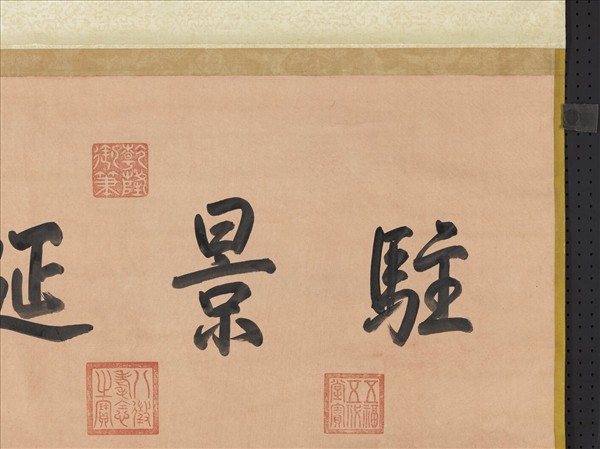 駐景延
乾隆御筆
五福五代堂寶
八徵耄念之寶